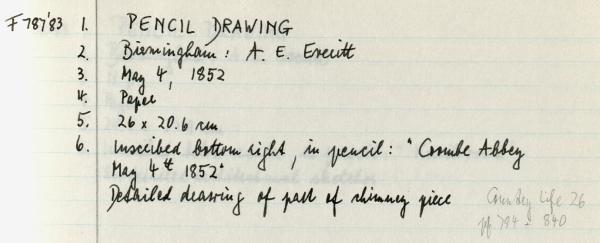 F 787'83 1. PENCIL DRAWING
2. Birmingham: A. E. Everitt
3. May 4, 1852
4. Paper
5. 26 x 20.6 cm
6. Inscribed bottom right, in pencil: "Coombe Abbey
May 4th 1852"
Detailed drawing of part of chimney piece
Country Life 26
pp. 794 - 840